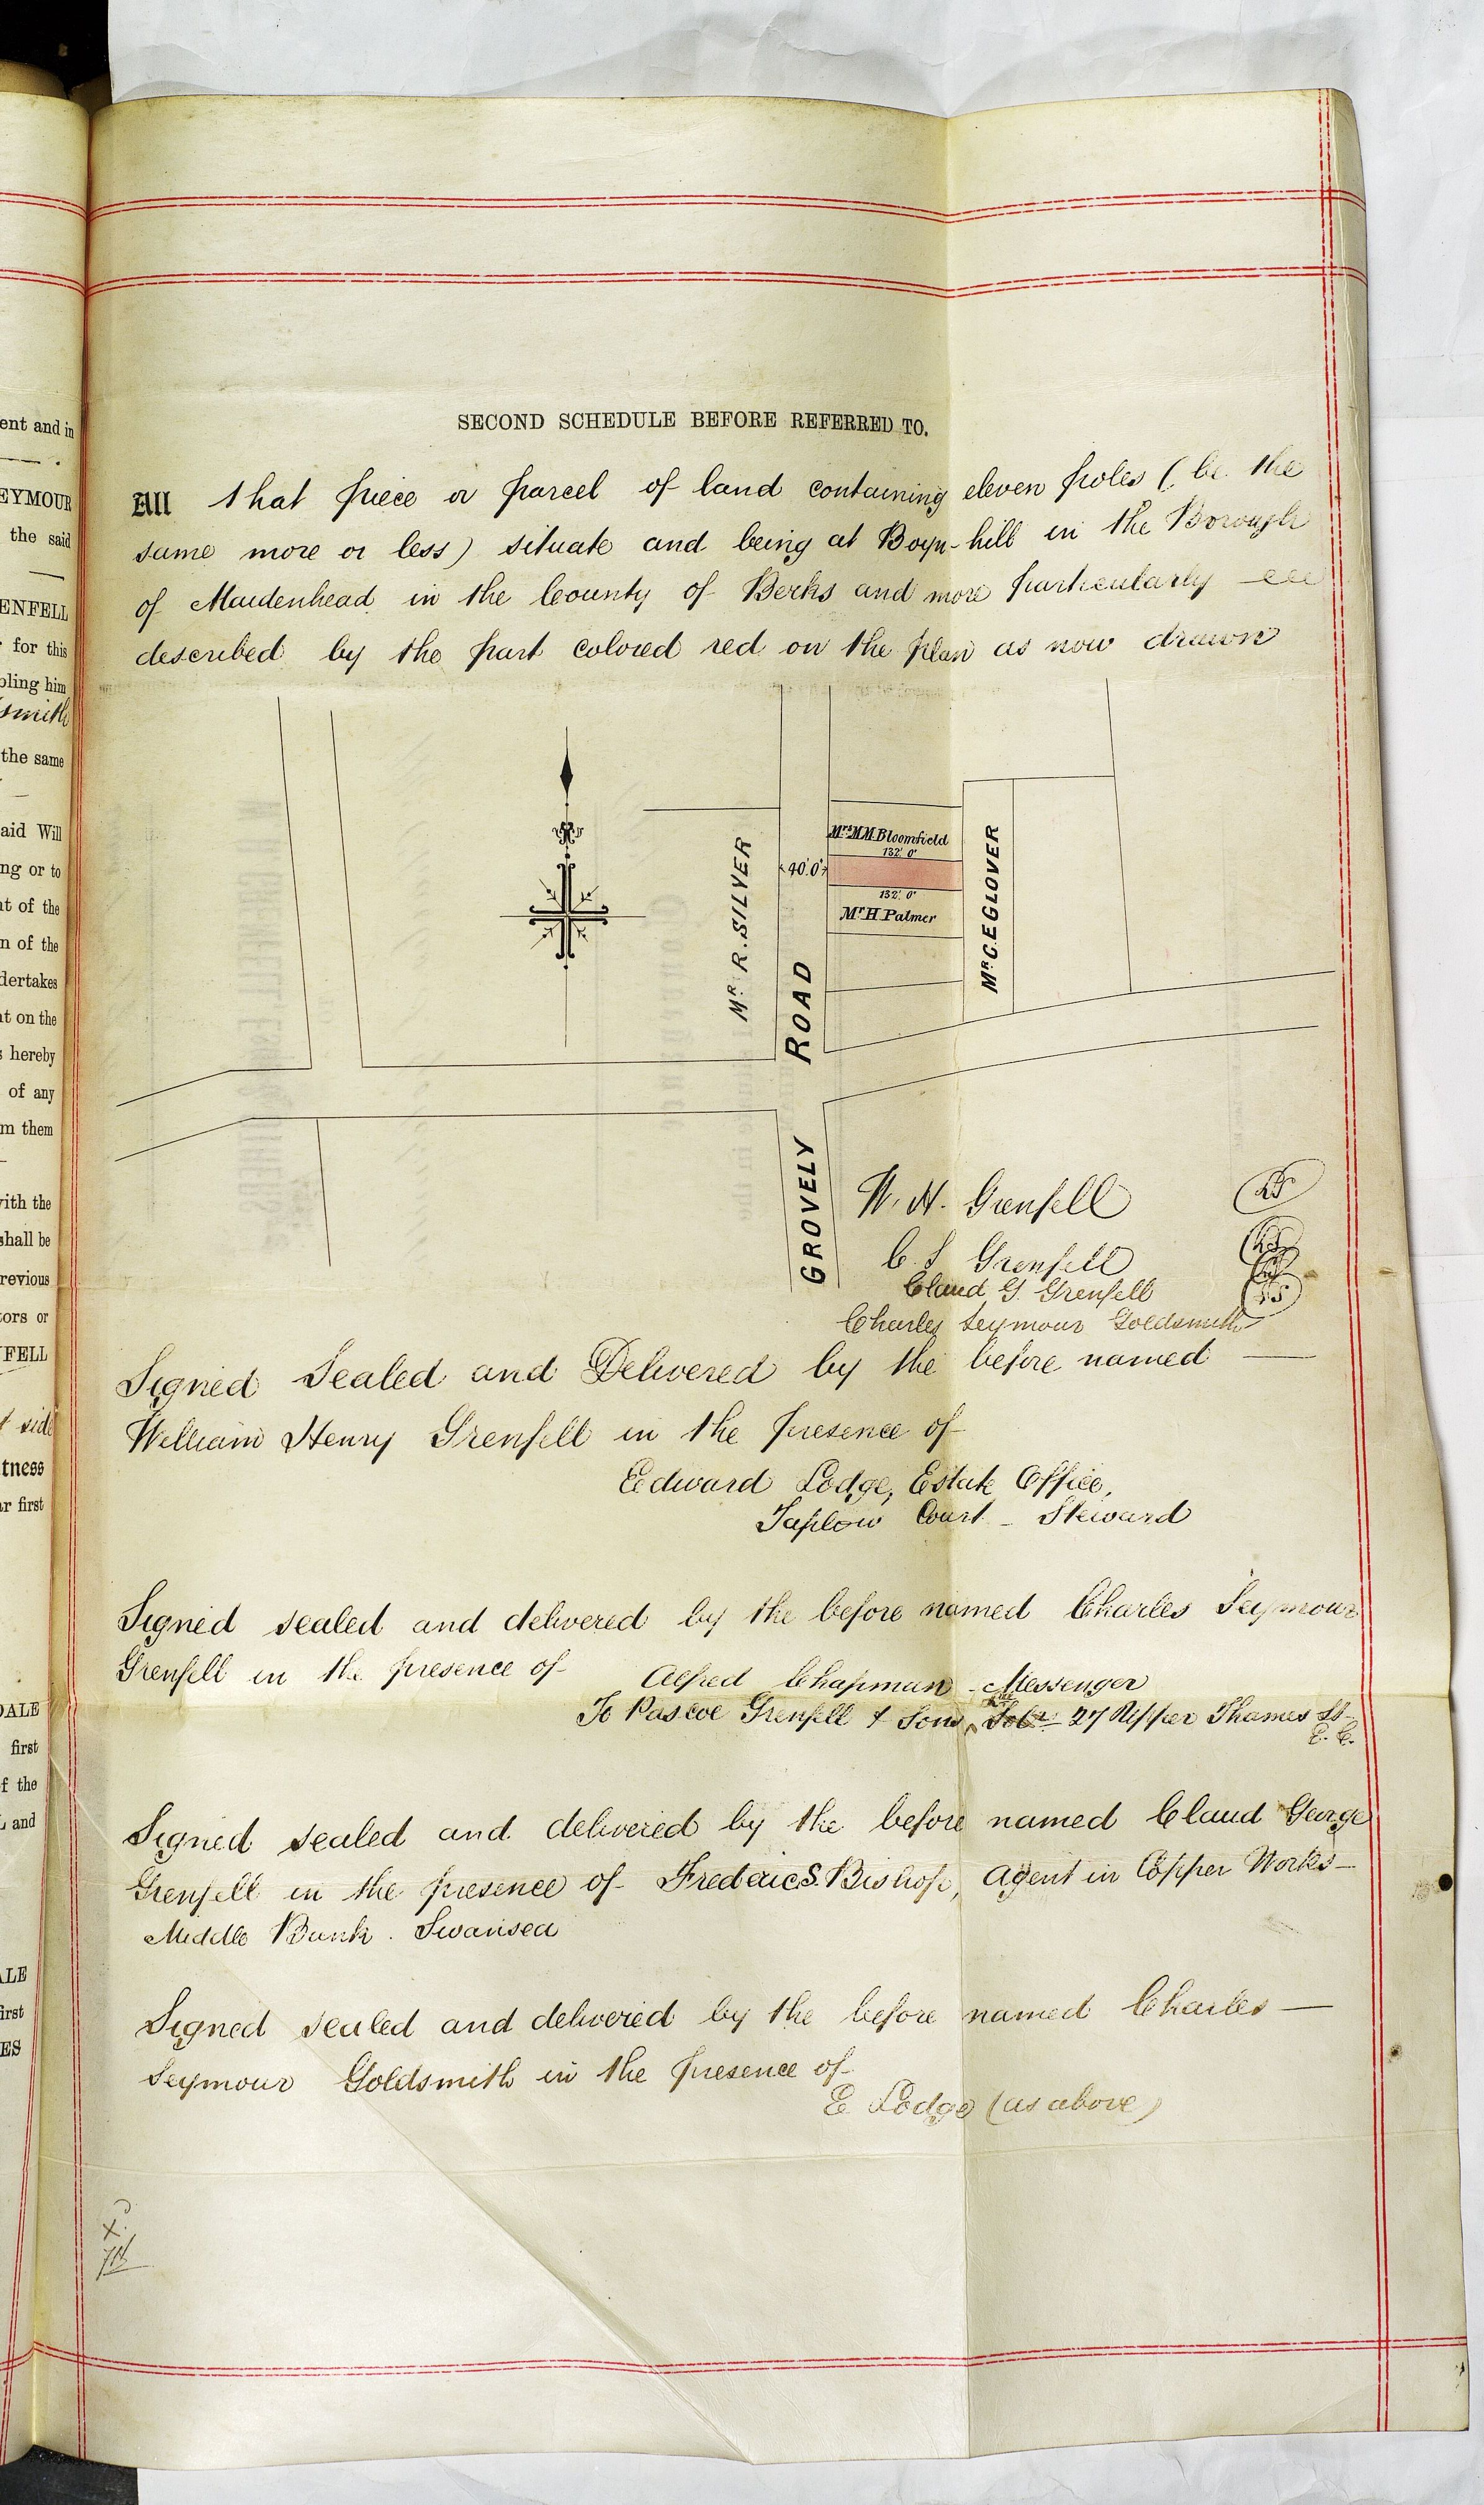 ent and in
EYMOUR
the said
ENFELL
for this
bling him
smith
the same
aid Will
ng or to
nt of the
n of the
dertakes
nt on the
s hereby
of any
m them
with the
shall be
revious
tors or
FELL
t side
tness
ar first
DALE
first
f the
L and
ALE
irst
ES
SECOND SCHEDULE BEFORE REFERRED TO.
All that piece or parcel of land containing eleven poles (be the
same more or less) situate and being at Boyn-hill in the Borough
of Maidenhead in the County of Berks and more particularly
described by the part colored red on the plan as now drawn
Mrs M.M. Bloomfield
132' 0"
40'.0"
132' 0"
Mr H. Palmer
Mr R. SILVER
Mr C.E GLOVER
GROVELY ROAD
W. H. Grenfell LS
C S Grenfell LS
Claud G. Grenfell LS
Charles Seymour Goldsmith LS
Signed Sealed and Delivered by the before named
William Henry Grenfell in the presence of
Edward Lodge, Estate Office,
Taplow Court - Steward
Signed sealed and delivered by the before named Charles Seymour
Grenfell in the presence of Alfred Chapman - Messenger
To Pascoe Grenfell & Sons 27 Upper Thames St
E. C.
Signed sealed and delivered by the before named Claud George
Grenfell in the presence of Frederic S. Bishop, Agent in Copper Works
Middle Bank. Swansea
Signed sealed and delivered by the before named Charles
Seymour Goldsmith in the presence of
E Lodge (as above)